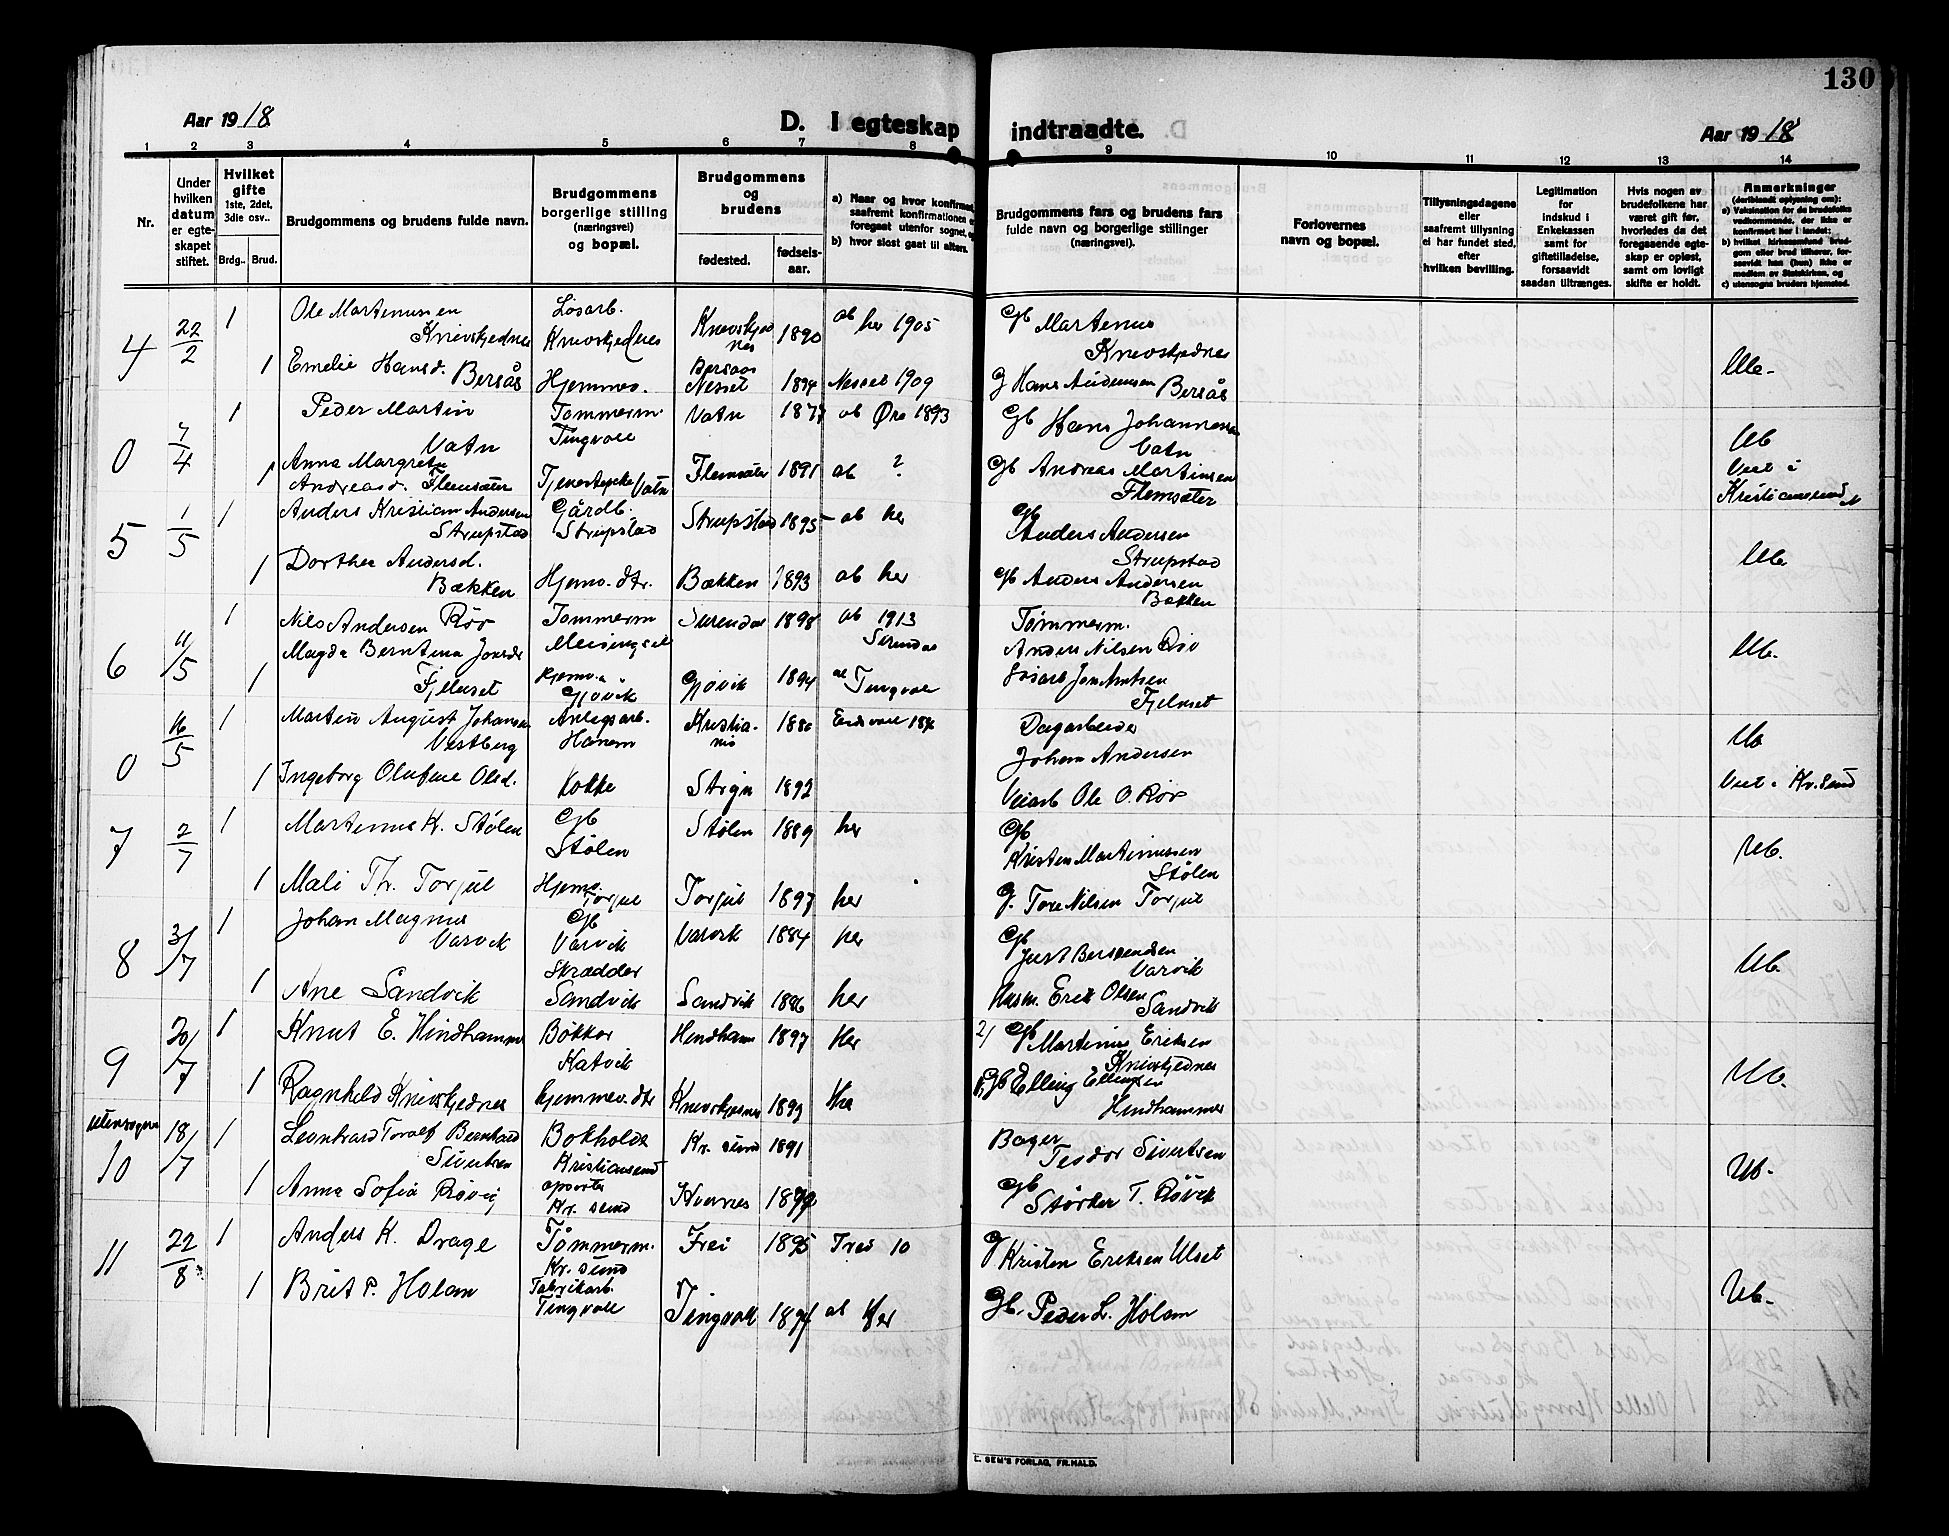 130
Aar 1918
D. I egteskap indtraadte.
Aar 1918
1 2 3 4 5 6 7 8 9 10 11 12 13 14
Nr.
Under hvilken datum er egteskapet stiftet.
Hvilket gifte 1ste, 2det, 3die osv..
Brdg.. Brud.
Brudgommens og brudens fulde navn.
Brudgommens borgerlige stilling (næringsvei) og bopæl.
Brudgommens og brudens
fødested.
fødsels-aar.
a) Naar og hvor konfirmert, saafremt konfirmationen er foregaat utenfor sognet, og
b) hvor sidst gaat til alters.
Brudgommens fars og brudens fars fulde navn og borgerlige stillinger (næringsvei).
Forlovernes navn og bopæl.
Tillysningsdagene eller saafremt tillysning ei har fundet sted, efter hvilken bevilling.
Legitimation for indskud i Enkekassen samt for giftetilladelse, forsaavidt saadan tiltrænges.
Hvis nogen av brudefolkene har været gift før, hvorledes da det foregaaende egteskap er opløst, samt om lovligt skifte er holdt.
Anmerkninger (deriblandt oplysning om):
a) Vaksination for de brudefolks vedkommende, der ikke er konfirmert her i landet;
b) hvilket kirkesamfund brudgom eller brud tilhører, forsaavidt han (hun) ikke er medlem av Statskirken, og
c) utensogns bruders hjemsted.
4 22/2 1 Ole Martinusen Løsarb. Knivskjednes 1890 ab her 1905 Gb Martinus
Knivskjednes Knivskjednes Knivskjednes
1 Emelie Hansd. Bersås Hjemmev. Bersaas Nesset 1894 Nesset 1909 G Hans Andersen Bersås Ub.
0 7/4 1 Peder Martin Vatn Tømmerm. Tingvoll Vatn 1877 ab Øre 1893 Gb Hans Johannesen Vatn Ub
1 Anna Margrete Andreasd. Flemsæter Tjenestepike Vatn Flemsæter 1891 ab ? Gb Andreas Martinsen Flemsæter Viet i Kristiansund N
5 1/5 1 Anders Kristian Andersen Strupstad Gårdb. Strupstad Strupstad 1895 ab her Gb Anders Andersen Strupstad
1 Dorthea Andersd. Bækken Hjemv. dtr. Bækken 1893 ab her Gb Anders Andersen Bækken Ub.
6 11/5 1 Nils Andersen Rør Tømmerm Meisingset Surendal 1898 ab 1913 Surendal Tømmerm. Anders Nilsen Rør Ub.
1 Magda Berntina Jonsd. Fjelnset Hjemv. Gjøvik Gjøvik 1894 ab Tingvoll Løsarb Jon Antsen Fjelnset
0 16/5 1 Martin August Johansen Vestberg Anlegsarb. Hanem Kristiania 1880 Eidsvoll Dagarbeider Johan Andersen Ub
1 Ingeborg Olufine Olsd. Kokke Stryn 1892 Veiarb Ole O. Rør Viet i Kr.sund
7 2/7 1 Martinus K. Stølen Gb Stølen Stølen 1889 her Gb Kristen Martinussen Stølen Ub.
1 Mali Th. Torjul Hjemv. Torjul Torjul 1897 her G. Tore Nilsen Torjul
8 3/7 1 Johan Magnus Varvik Gb Varvik Varvik 1884 her Gb Just Berntsen Varvik Ub.
1 Ane Sandvik Skrædder Sandvik Sandvik 1886 her Husm. Erik Olsen Sandvik
9 20/7 1 Knut E. Hindhammer Bøkker Katvik Hindham 1897 Her 2/ Gb Martinus Eriksen Knivskjednes Ub.
1 Ragnhild Knivskjednes hjemmev. dtr Knivskjednes 1899 Her 1, Gb Elling Ellingsen Hindhammer
utensogns 10 18/7 1 Leonhard Toralf Bernhard Sivertsen Bokholder Kristiansund Kr. sund 1891 Bager Teodor Sivertsen Ub.
1 Anna Sofia Røvig Kr. sund Kvernes 1879 Gb Størker T. Røvik
11 22/8 1 Anders K. Drage Tømmerm. Kr. sund Frei 1895 Frei 10 G Kristen Eriksen Ulset Ub.
1 Brit P. Holam Fabrikarb. Tingvoll Tingvoll 1894 ab Her Gb. Peder L. Holam
E. SEM'S FORLAG, FR.HALD.